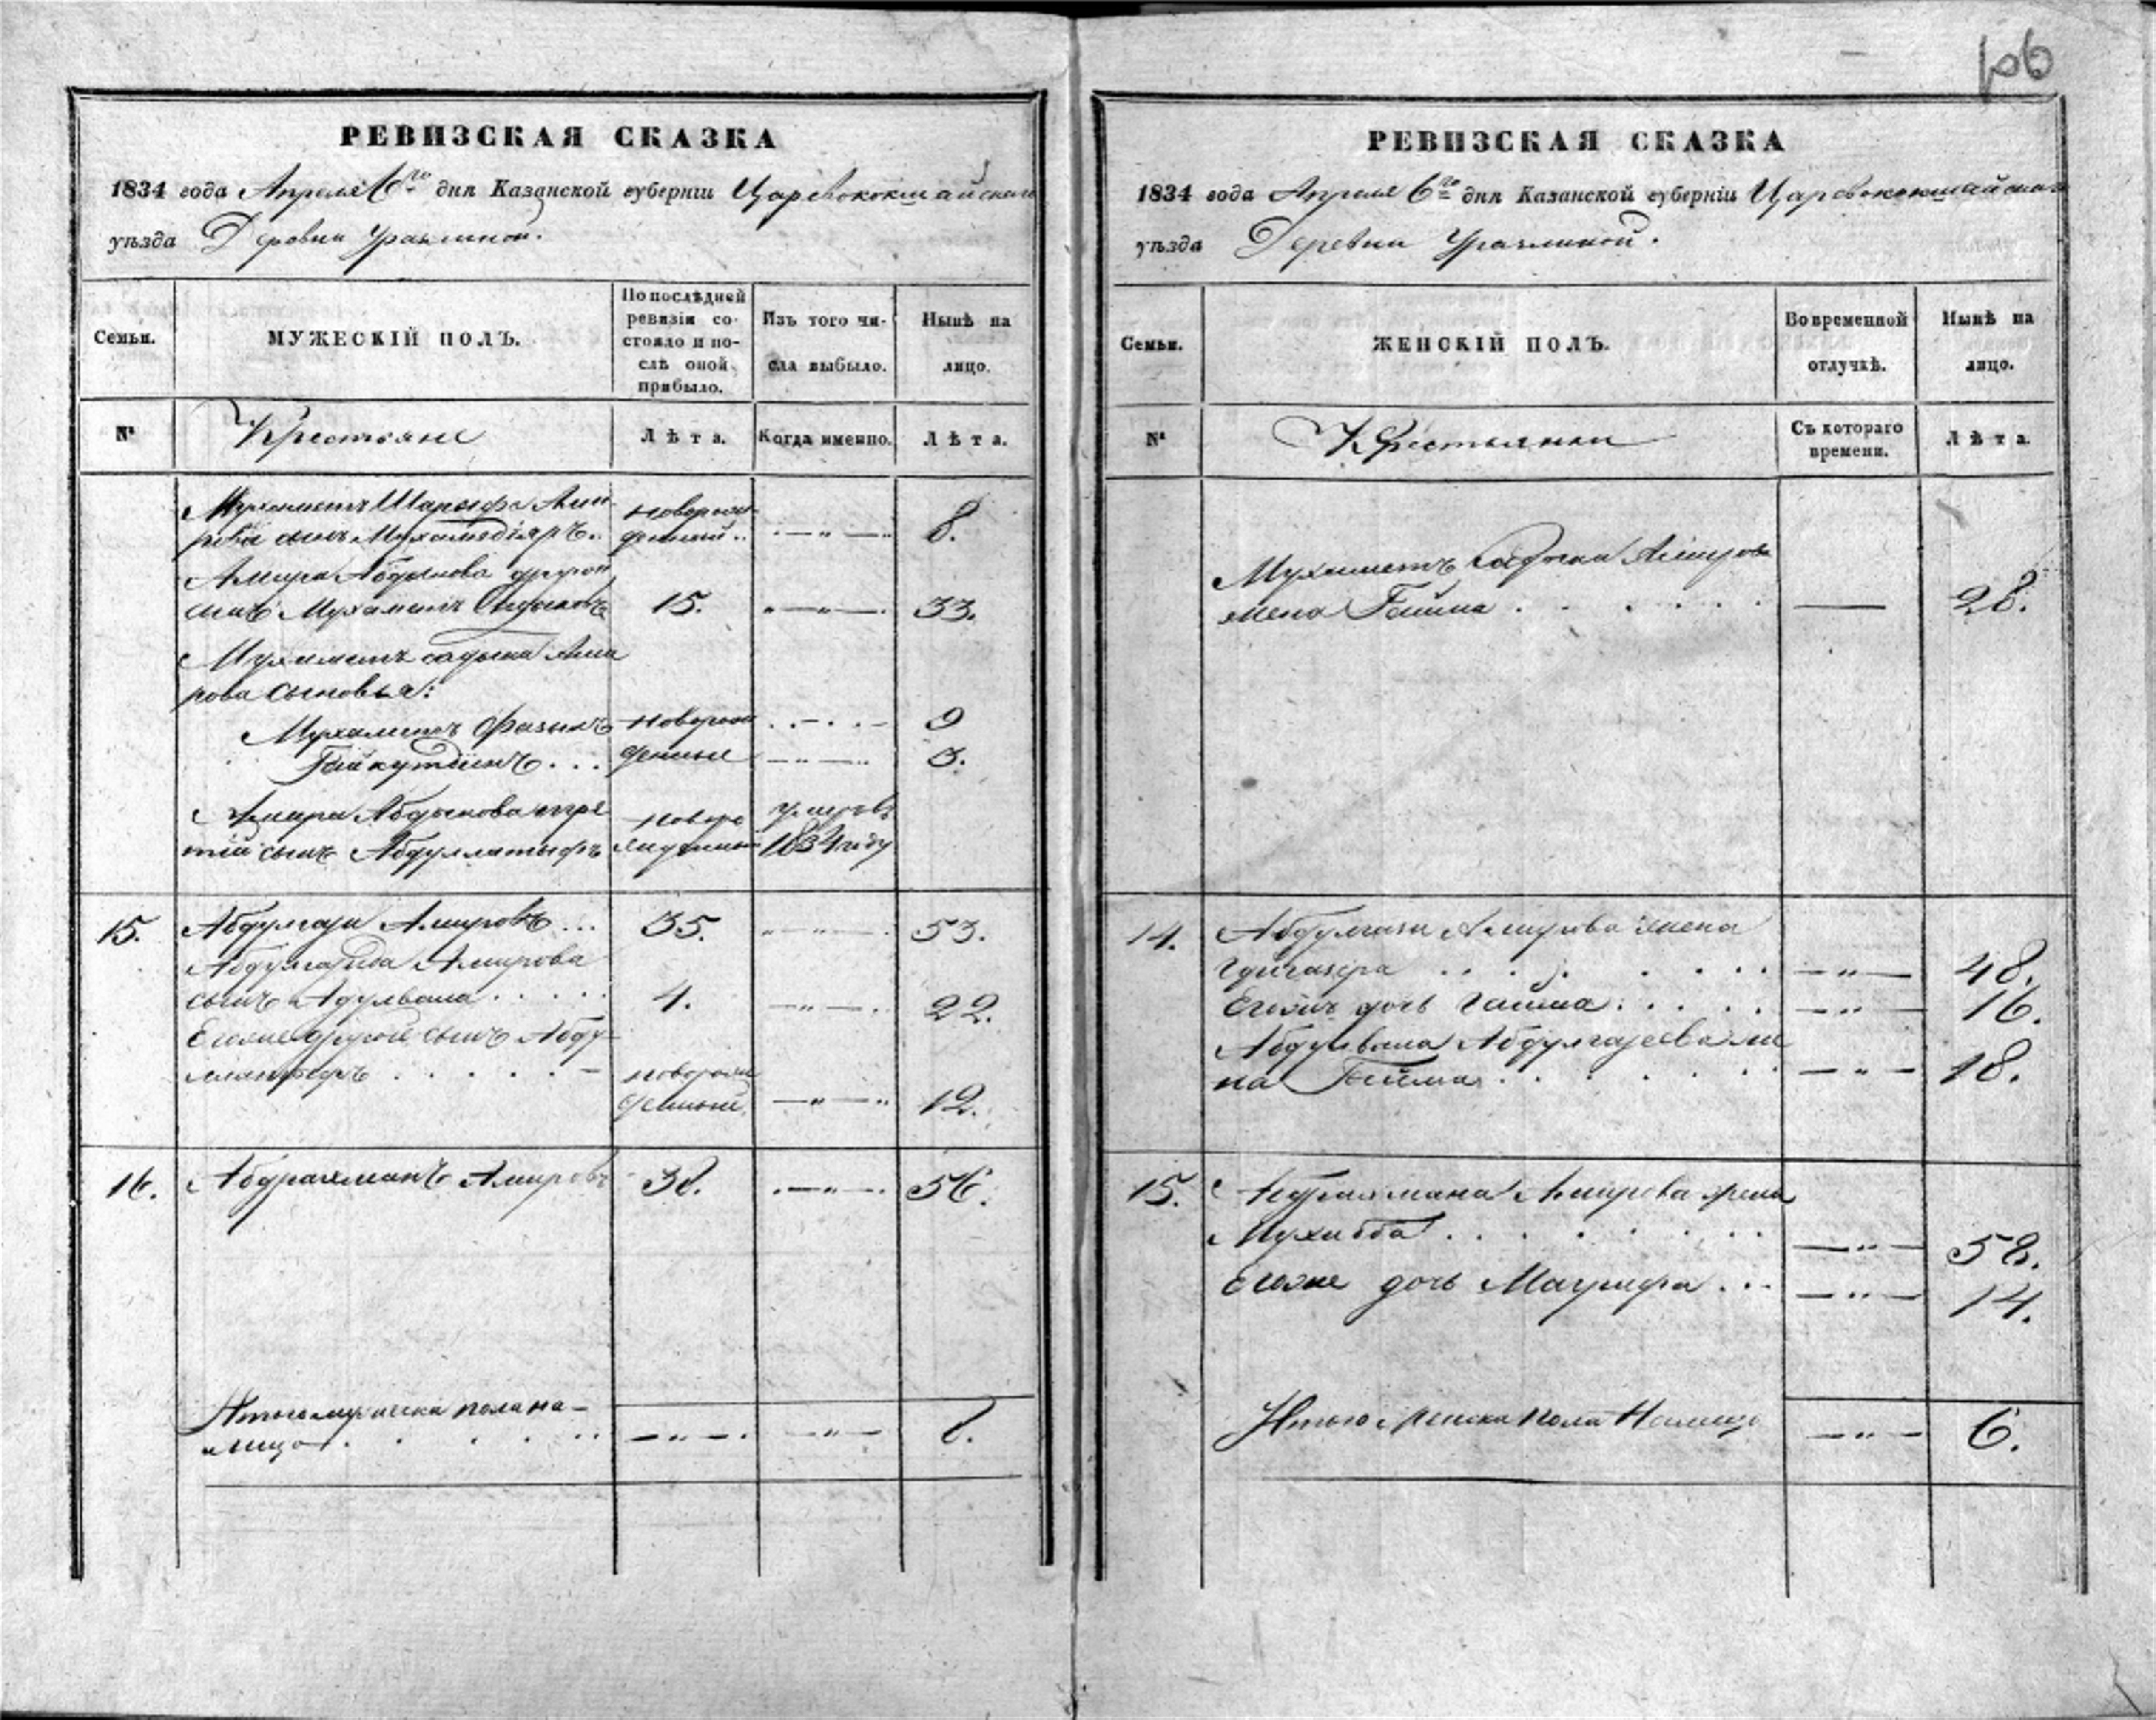 106
РЕВИЗСКАЯ СКАЗКА
1834 года Апреля 6го дня Казанской губерніи Царевококшайскаго
уѣзда Деревни Уразлиной.
Семьи.
МУЖЕСКІЙ ПОЛЪ.
По послѣдней ревизіи со-
стояло и по-
слѣ оной
прибыло.
Изъ того чи-
сла выбыло.
Нынѣ на
лицо.
№
Крестьяне
Лѣта.
Когда именно.
Лѣта.
Мухаметъ Шарыфа Ами-
рова сынъ Мухамедіяръ..
новорож-
денный..
8.
Амира Абдыкова другой
сынъ Мухаметъ Садыковъ
15.
33.
Мухаметъ садыка Ами
рова сыновья:
Мухаметъ Фазылъ
новорож
9
Гайнутдинъ...
денные
3.
Амира Абдыкова тре
тій сынъ Абдуллатыфъ
новоро
жденный
умеръ въ
1834 году
15.
Абдулгази Амировъ...
35.
53.
Абдулгазыа Амирова
сынъ Абдулвали.....
4.
22.
Егоже другой сынъ Абду-
ллатыфъ.....
новорож
денный
12.
16.
Абдрахманъ Амировъ
38.
56.
Итого мужеска пола на-
лицо.....
8.
РЕВИЗСКАЯ СКАЗКА
1834 года Апреля 6го дня Казанской губерніи Царевококшайскаго
уѣзда Деревни Уразлиной.
Семьи.
ЖЕНСКІЙ ПОЛЪ.
Во временной
отлучкѣ.
Нынѣ на
лицо.
№
Крестьянки
Съ котораго
времени.
Лѣта.
Мухаметъ садыка Амирова
жена Гайша......
28.
14.
Абдулгази Амирова жена
48.
Егожъ дочь Гайша....
16.
Абдулвали Абдулгазеева же
на Гайша......
18.
15.
Абдрахмана Амирова жена
Мухибба......
58.
Егоже дочь Магрифа...
14.
Итого женска пола Налицо
6.